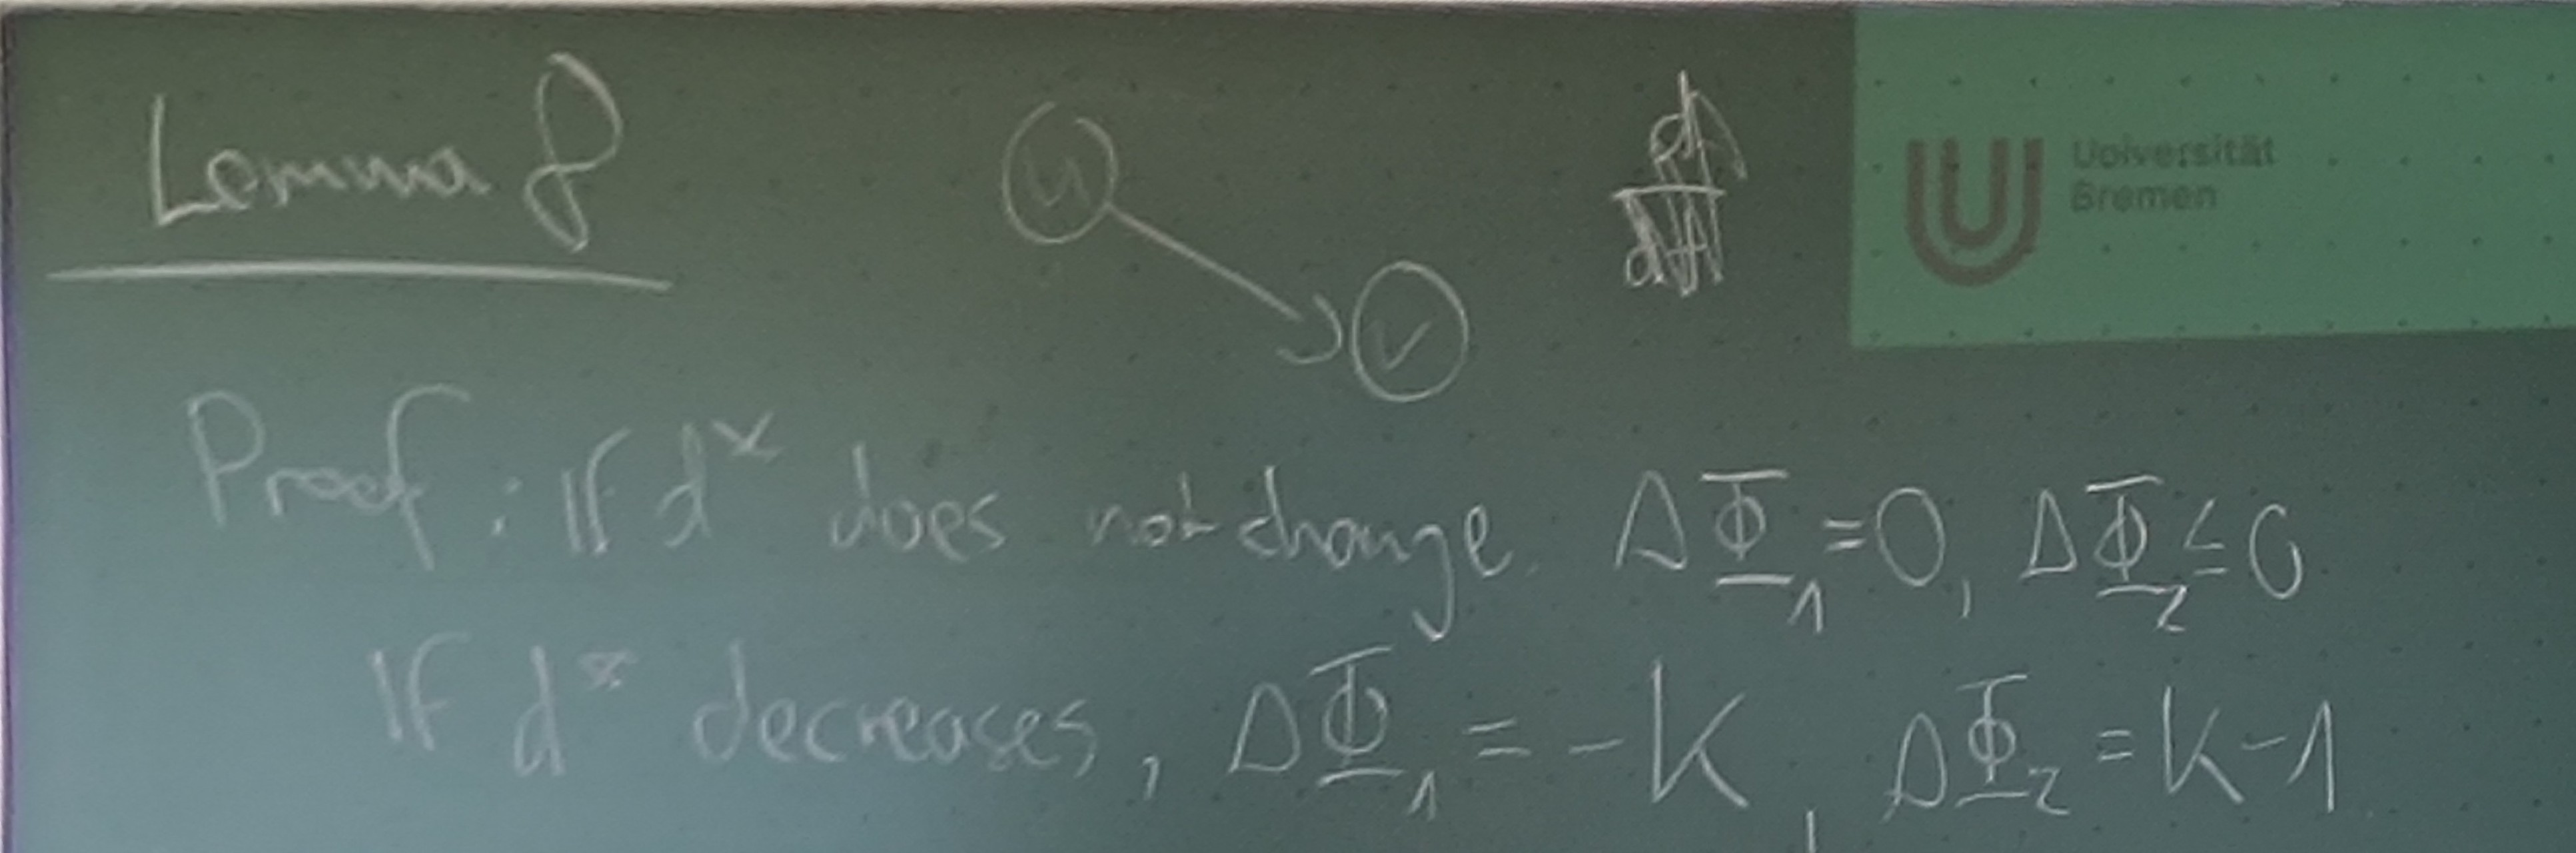 Lemma 8
u
v
Universität
Bremen
Proof: If d* does not change. ΔΦ₁=0, ΔΦ₂≤0
If d* decreases, ΔΦ₁ = -K, ΔΦ₂ = K-1